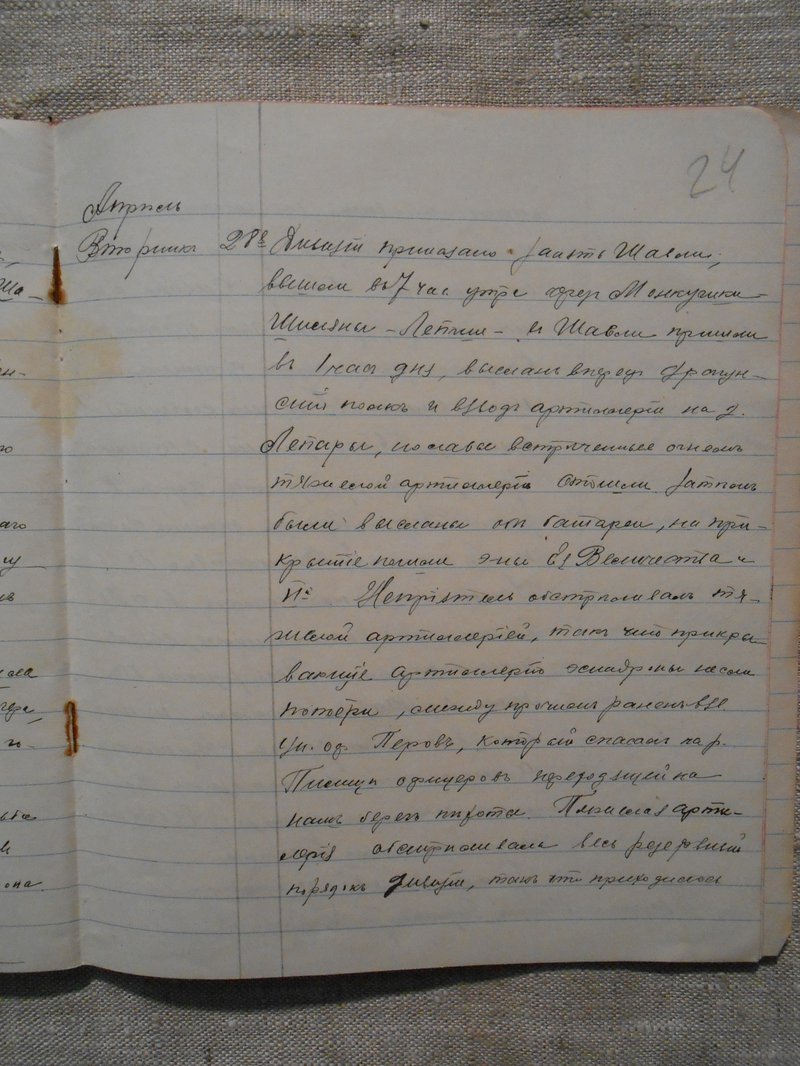 24
Апрѣль
Вторникъ 28е Дивизіи приказано занять Шавли,
вышли въ 7 час утра чрез
Шиляны - и Шавли пришли
въ 1 час дня, выслали впередъ драгун-
скій полкъ и взводъ артиллеріи на д.
Лепары, но славы встрѣченные огнемъ
тяжелой артиллеріи отошли. Затѣмъ
были высланы обѣ батареи, на при-
крытіе пошли эны Ея Величества и
Непріятель обстрѣливалъ тя-
желой артиллеріей, такъ что прикры-
вающіе артиллерію эскадроны несли
потери, между прочимъ раненъ
Ун. оф. Перовъ, который спасалъ
офицеровъ переходящей на
нашъ берегъ пѣхоты. Тяжелая арти-
лерія обстрѣливала весь резервный
порядокъ дивизіи, такъ что приходилось
ша-
ен-
аго
ла
го-
она.